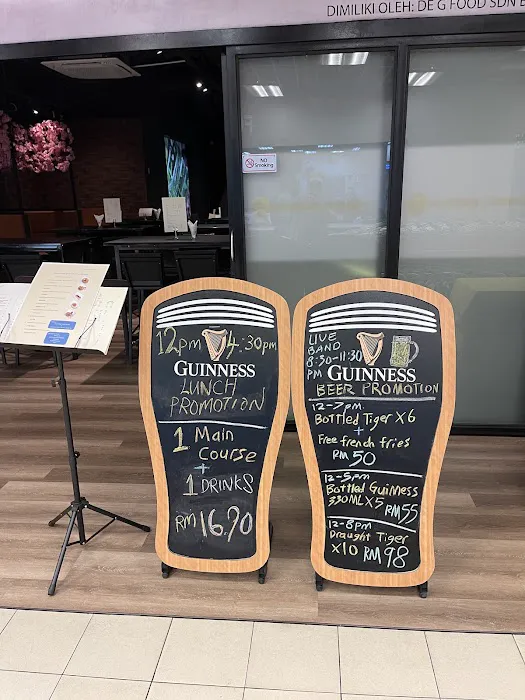 DIMILIKI OLEH: DE G FOOD SDN
NO
Smoking
12pm 4:30pm
GUINNESS
LUNCH
PROMOTION
1 Main
Course
+
1 DRINKS
RM16.90
LIVE
BAND
8:30-11:30
PM
GUINNESS
BEER PROMOTION
12-7pm
Bottled Tiger X6
+
Free french fries
RM 50
12-5pm
Bottled Guinness
330MLX5 RM55
12-8pm
Draught Tiger
X10 RM98